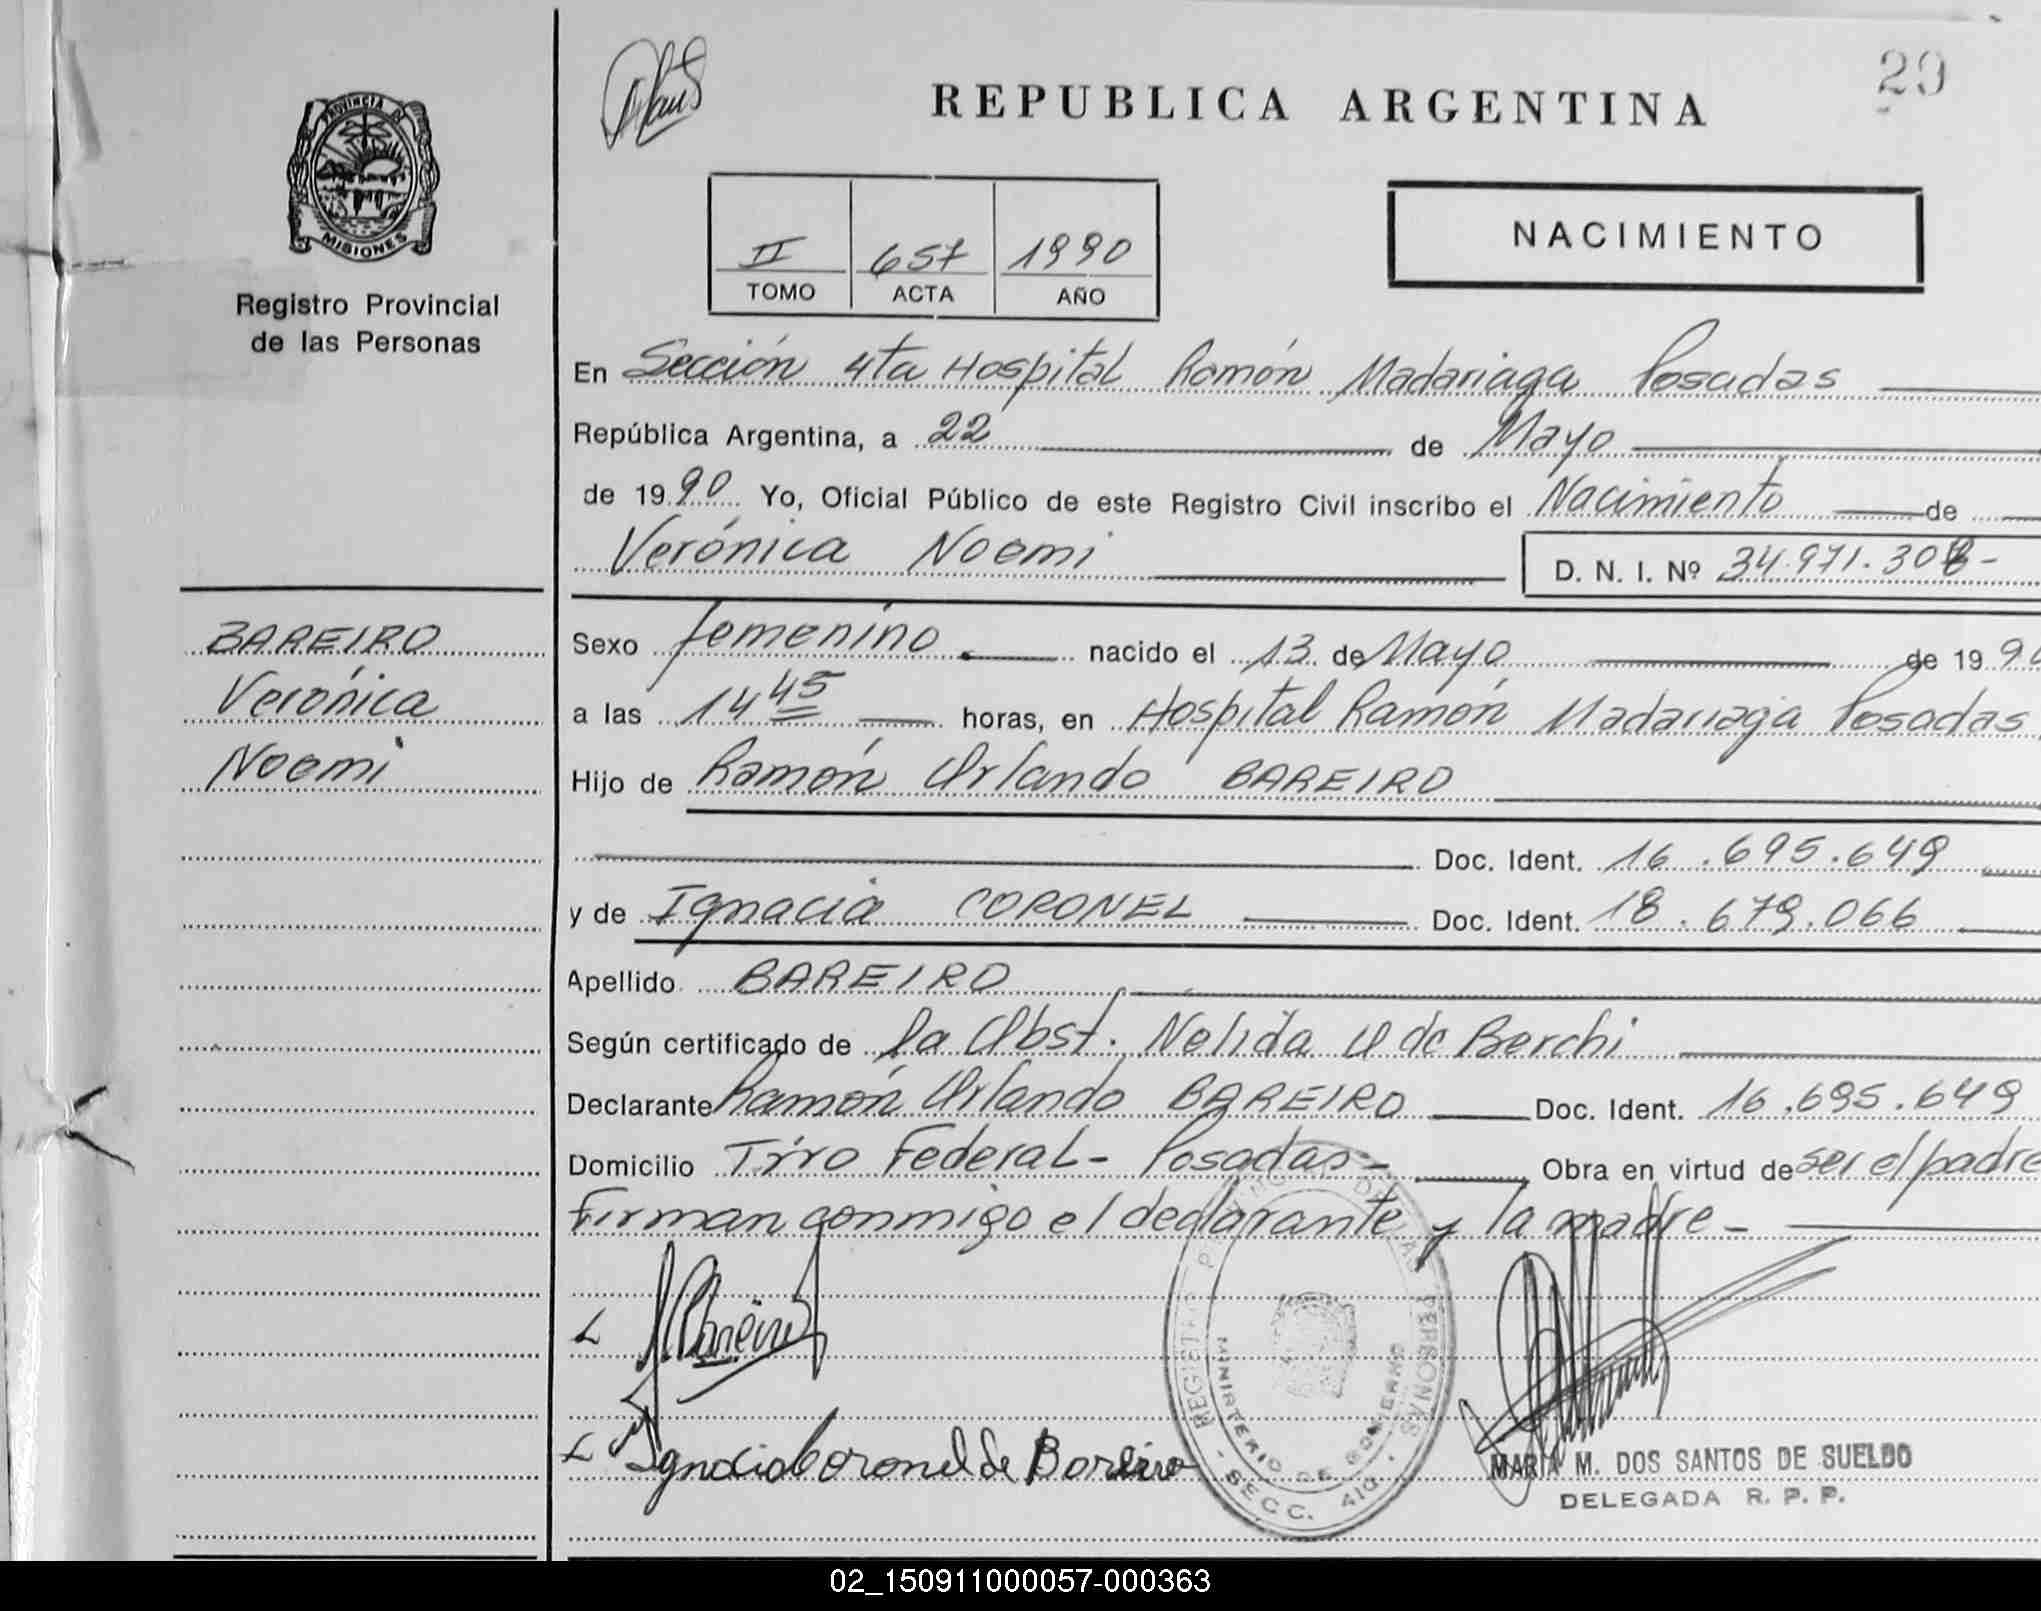 29
REPUBLICA ARGENTINA
PROVINCIA DE
MISIONES
Registro Provincial
de las Personas
II 657 1990
TOMO ACTA AÑO
NACIMIENTO
En Sección 4ta Hospital Ramón Madariaga Posadas
República Argentina, a 22 de Mayo
de 1990 Yo, Oficial Público de este Registro Civil inscribo el Nacimiento de
Verónica Noemi D. N. I. Nº 34.971.308-
BAREIRO
Verónica
Noemi
Sexo femenino nacido el 13 de Mayo de 1990
a las 14 45 horas, en Hospital Ramón Madariaga Posadas
Hijo de Ramón Orlando BAREIRO
Doc. Ident. 16.695.649
y de Ignacia CORONEL Doc. Ident. 18.679.066
Apellido BAREIRO
Según certificado de la Obst. Nelida O de Berchi
Declarante Ramón Orlando BAREIRO Doc. Ident. 16.695.649
Domicilio Tiro Federal - Posadas - Obra en virtud de ser el padre
Firman conmigo el declarante y la madre -
Bareiro
Ignacia Coronel de Bareiro
REGISTRO PROVINCIAL DE LAS PERSONAS
MINISTERIO DE GOBIERNO
- SECC. 4ta. -
MARIA M. DOS SANTOS DE SUELDO
DELEGADA R. P. P.
02_150911000057-000363